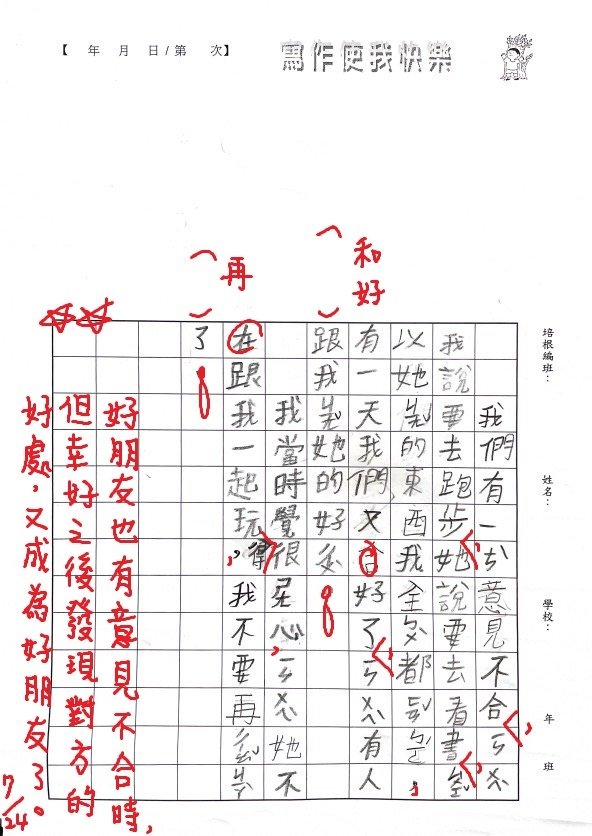 【 年 月 日/第 次】
寫作使我快樂
培根編班: 姓名: 學校: 年 班
我們有一ㄘ意見不合
我說要去跑步她說要去看書
以她的東西我全都
有一天我們又合好了有人
和好
跟我她的好
我當時覺很心,她不
得
在跟我一起玩,我不要再
再
了
好朋友也有意見不合時,
但幸好之後發現對方的
好處,又成為好朋友了。
7/24